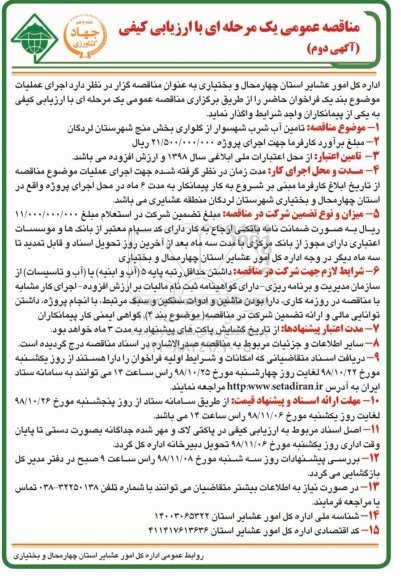 مناقصه عمومی یک مرحله ای با ارزیابی کیفی
(آگهی دوم)
جهاد
کشاورزی
اداره کل امور عشایر استان چهارمحال و بختیاری به عنوان مناقصه گزار در نظر دارد اجرای عملیات
موضوع بند یک فراخوان حاضر را از طریق برگزاری مناقصه عمومی یک مرحله ای با ارزیابی کیفی
به یکی از پیمانکاران واجد شرایط واگذار نماید.
۱- موضوع مناقصه: تامین آب شرب شهسوار از کلواری بخش منج شهرستان لردگان
۲- مبلغ برآورد کارفرما جهت اجرای پروژه ۲۱/۵۰۰/۰۰۰/۰۰۰ ریال
۳- تامین اعتبار: از محل اعتبارات ملی ابلاغی سال ۱۳۹۸ و ارزش افزوده می باشد.
۴- مدت و محل اجرای کار: مدت زمان در نظر گرفته شده جهت اجرای عملیات موضوع مناقصه
از تاریخ ابلاغ کارفرما مبنی بر شروع به کار پیمانکار به مدت ۶ ماه در محل اجرای پروژه واقع در
استان چهارمحال و بختیاری شهرستان لردگان منطقه عشایری می باشد.
۵- میزان و نوع تضمین شرکت در مناقصه: مبلغ تضمین شرکت در استعلام مبلغ ۱۱/۰۰۰/۰۰۰/۰۰۰
ریال به صورت ضمانت نامه بانکی ارجاع به کار دارای کد سپام معتبر از بانک ها و موسسات
اعتباری دارای مجوز از بانک مرکزی با مدت سه ماه بعد از آخرین روز تحویل اسناد و قابل تمدید تا
سه ماه دیگر در وجه اداره کل امور عشایر استان چهارمحال و بختیاری
۶- شرایط لازم جهت شرکت در مناقصه: داشتن حداقل رتبه پایه ۵ (آب و ابنیه) یا (آب و تاسیسات) از
سازمان مدیریت و برنامه ریزی - دارای گواهینامه ثبت نام مالیات بر ارزش افزوده - اجرای کار مشابه
با مناقصه در روزمه کاری، دارا بودن ماشین و ادوات سنگین و سبک مرتبط، با انجام پروژه، داشتن
توانایی مالی و ارائه تضمین شرکت در مناقصه (موضوع بند ۴)، گواهی ایمنی کار پیمانکاران
۷- مدت اعتبار پیشنهادها: از تاریخ گشایش پاکت های پیشنهاد به مدت ۳ ماه خواهد بود.
۸- سایر اطلاعات و جزئیات مربوط به مناقصه صدرالاشاره در اسناد مناقصه درج گردیده است.
۹- دریافت اسناد متقاضیانی که امکانات و شرایط اولیه فراخوان را دارا هستند از روز یکشنبه
مورخ ۹۸/۱۰/۲۲ لغایت روز چهارشنبه مورخ ۹۸/۱۰/۲۵ راس ساعت ۱۴ می توانند به سامانه ستاد
ایران به آدرس http:www.setadiran.ir مراجعه نمایند.
۱۰- مهلت ارائه اسناد و پیشنهاد قیمت: از طریق سامانه ستاد از روز پنجشنبه مورخ ۹۸/۱۰/۲۶
لغایت روز یکشنبه مورخ ۹۸/۱۱/۰۶ راس ساعت ۱۴ می باشد.
۱۱- اصل اسناد مربوط به ارزیابی کیفی در پاکتی لاک و مهر شده جداگانه بصورت دستی تا پایان
وقت اداری روز یکشنبه مورخ ۹۸/۱۱/۰۶ تحویل دبیرخانه اداره کل گردد.
۱۲- بررسی پیشنهادات روز سه شنبه مورخ ۹۸/۱۱/۰۸ راس ساعت ۹ صبح در دفتر مدیر کل
بازگشایی می گردد.
۱۳- در صورت نیاز به اطلاعات بیشتر متقاضیان می توانند با شماره تلفن ۳۲۲۵۰۱۳۸-۰۳۸ تماس
یا مراجعه فرمایند.
۱۴- شناسه ملی اداره کل امور عشایر استان ۱۴۰۰۳۰۶۵۳۲۲
۱۵- کد اقتصادی اداره کل امور عشایر استان ۴۱۱۴۱۷۶۱۳۶۳۶
روابط عمومی اداره کل امور عشایر استان چهارمحال و بختیاری